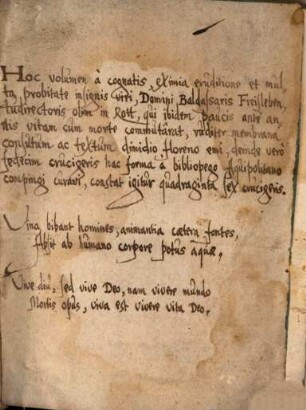 Hoc volumen a cognatis, eximia eruditione et mul
ta, probitate insignis viri, Domini Baldassaris Freisleben,
ludirectoris olim in Rott, qui ibidem paucis ante an
nis vitam cum morte commutarat, ruditer membrana
consutum ac tectum dimidio floreno emi, deinde vero
sedecim crucigeris hac forma a bibliopego Aquipolitano
compingi curavi, constat igitur quadraginta sex crucigeris.
Vina bibant homines, animantia cætera fontes,
Absit ab humano corpore potus aquæ,
Vive diu, sed vive Deo, nam vivere mundo
Mortis opus, viva est vivere vita Deo,